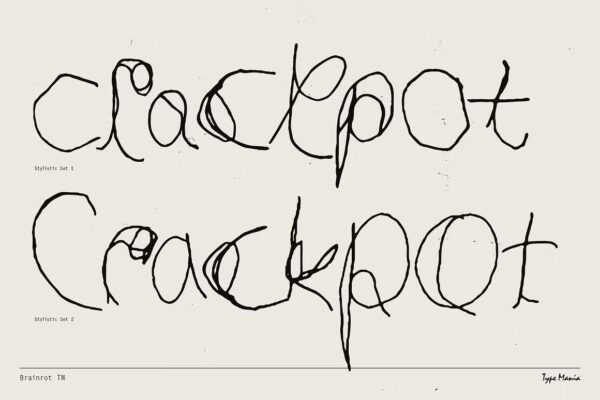 crackpot
Stylistic Set 1
Crackpot
Stylistic Set 2
Brainrot TM
Type Mania